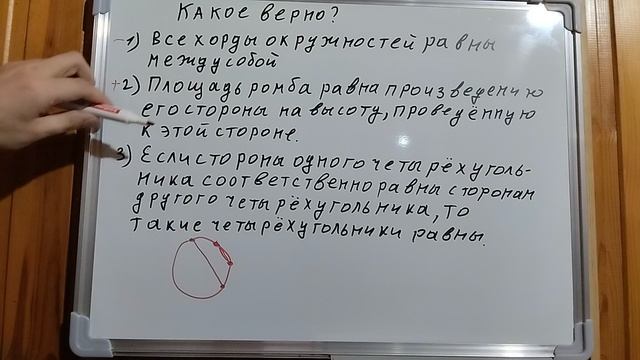 Какое верно?
-1) Все хорды окружностей равны
между собой
+2) Площадь ромба равна произведению
его стороны на высоту, проведённую
к этой стороне.
3) Если стороны одного четырёхуголь-
ника соответственно равны сторонам
другого четырёхугольника, то
такие четырёхугольники равны.